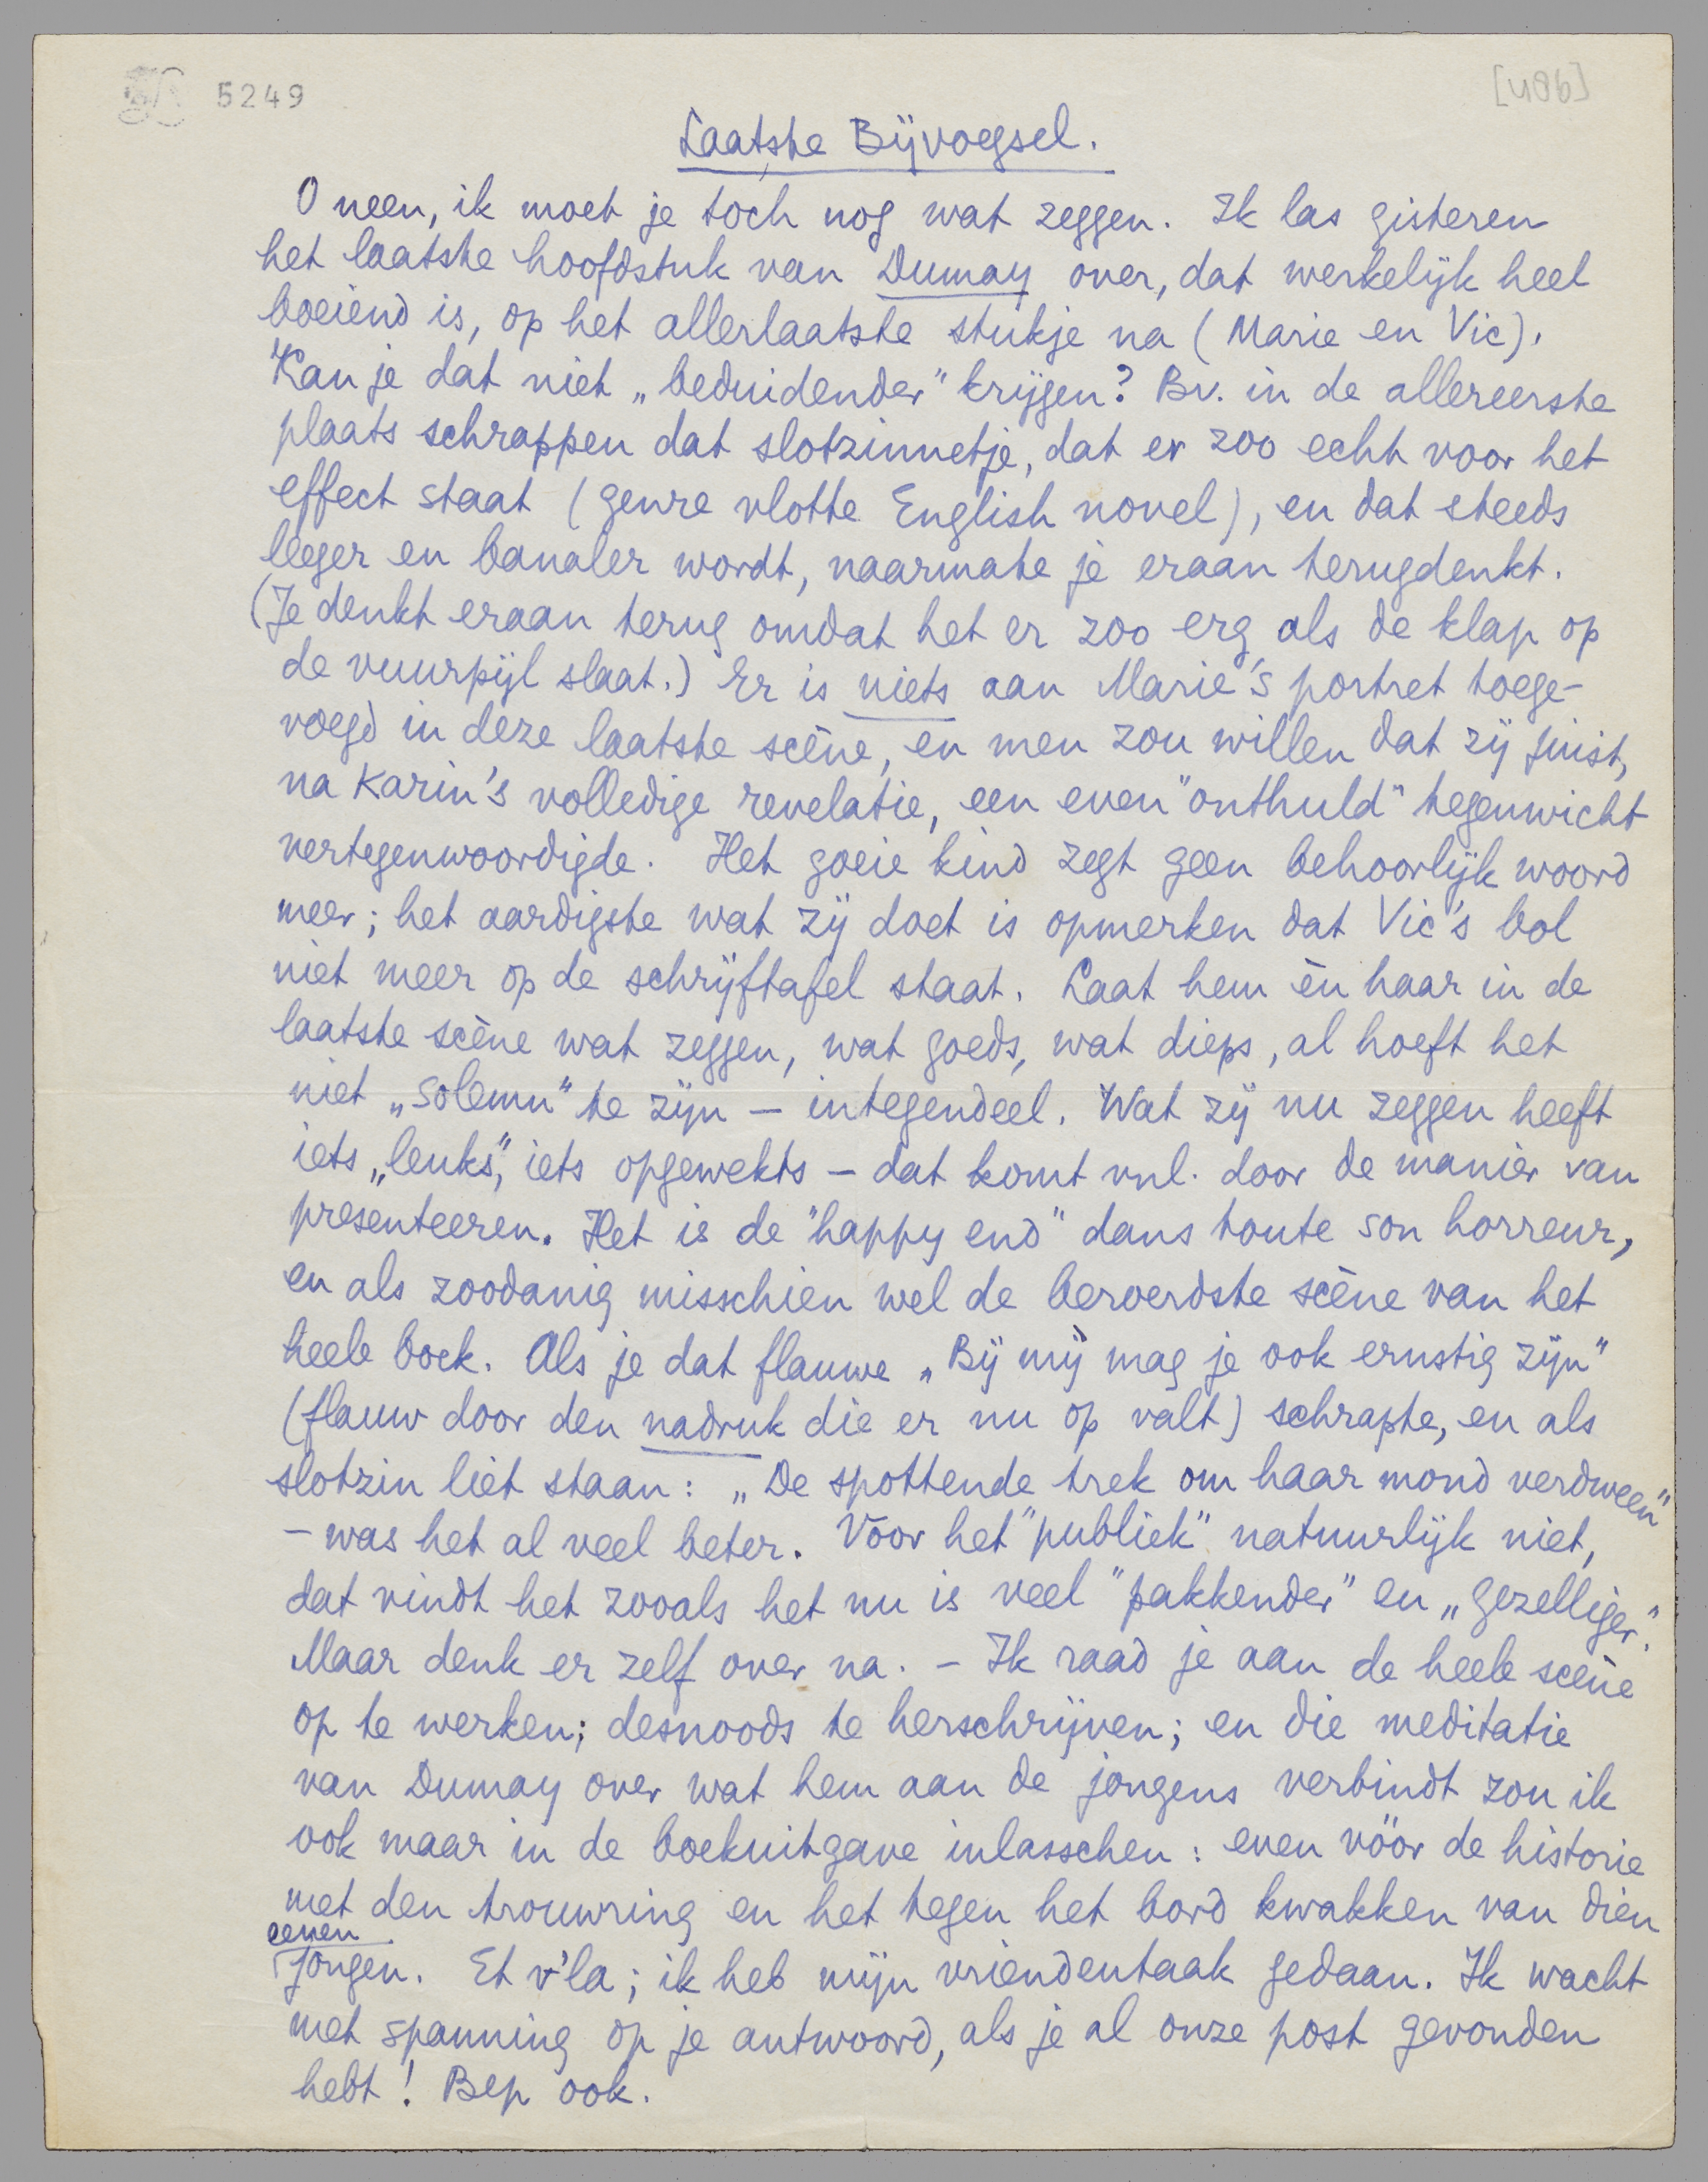 5249
[486]
Laatste Bijvoegsel.
O neen, ik moet je toch nog wat zeggen. Ik las gisteren
het laatste hoofdstuk van Dumay over, dat werkelijk heel
boeiend is, op het allerlaatste stukje na (Marie en Vic).
Kan je dat niet „beduidender” krijgen? Bv. in de allereerste
plaats schrappen dat slotzinnetje, dat er zoo echt voor het
effect staat (genre vlotte English novel), en dat steeds
leeger en banaler wordt, naarmate je eraan terugdenkt.
(Je denkt eraan terug omdat het er zoo erg als de klap op
de vuurpijl slaat.) Er is niets aan Marie's portret toege-
voegd in deze laatste scène, en men zou willen dat zij juist,
na Karin's volledige revelatie, een even "onthuld" tegenwicht
vertegenwoordigde. Het goeie kind zegt geen behoorlijk woord
meer; het aardigste wat zij doet is opmerken dat Vic's bol
niet meer op de schrijftafel staat. Laat hem èn haar in de
laatste scène wat zeggen, wat goeds, wat dieps, al hoeft het
niet „solemn” te zijn – integendeel. Wat zij nu zeggen heeft
iets „leuks”, iets opgewekts – dat komt vnl. door de manier van
presenteeren. Het is de "happy end" dans toute son horreur,
en als zoodanig misschien wel de beroerdste scène van het
heele boek. Als je dat flauwe „Bij mij mag je ook ernstig zijn”
(flauw door den nadruk die er nu op valt) schrapte, en als
slotzin liet staan: „De spottende trek om haar mond verdween”
– was het al veel beter. Voor het "publiek" natuurlijk niet,
dat vindt het zooals het nu is veel "pakkender" en „gezelliger”.
Maar denk er zelf over na. – Ik raad je aan de heele scène
op te werken; desnoods te herschrijven; en die meditatie
van Dumay over wat hem aan de jongens verbindt zou ik
ook maar in de boekuitgave inlasschen: even vóór de historie
met den trouwring en het tegen het bord kwakken van dien
eenen
jongen. Et v'la; ik heb mijn vriendentaak gedaan. Ik wacht
met spanning op je antwoord, als je al onze post gevonden
hebt! Bep ook.